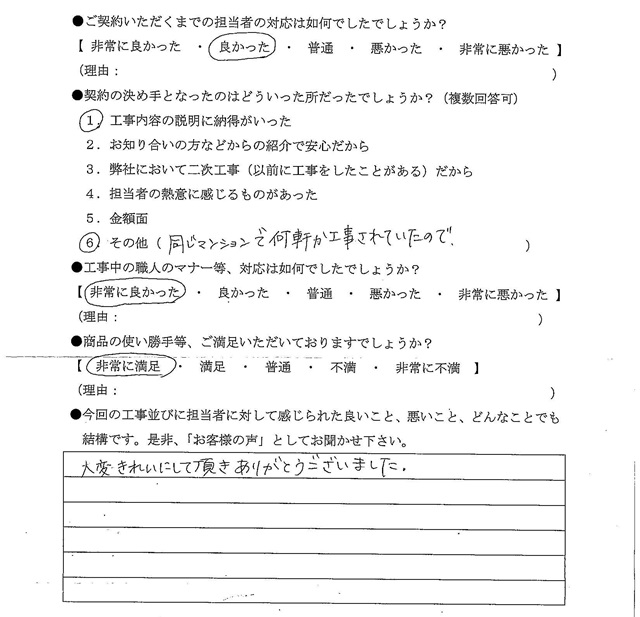 ●ご契約いただくまでの担当者の対応は如何でしたでしょうか？
【 非常に良かった ・ 良かった ・ 普通 ・ 悪かった ・ 非常に悪かった 】
（理由： ）
●契約の決め手となったのはどういった所だったでしょうか？（複数回答可）
１．工事内容の説明に納得がいった
２．お知り合いの方などからの紹介で安心だから
３．弊社において二次工事（以前に工事をしたことがある）だから
４．担当者の熱意に感じるものがあった
５．金額面
６ その他（ 同じマンションで何軒か工事されていたので. ）
●工事中の職人のマナー等、対応は如何でしたでしょうか？
【 非常に良かった ・ 良かった ・ 普通 ・ 悪かった ・ 非常に悪かった 】
（理由： ）
●商品の使い勝手等、ご満足いただいておりますでしょうか？
【 非常に満足 ・ 満足 ・ 普通 ・ 不満 ・ 非常に不満 】
（理由： ）
●今回の工事並びに担当者に対して感じられた良いこと、悪いこと、どんなことでも
結構です。是非、「お客様の声」としてお聞かせ下さい。
大変きれいにして頂きありがとうございました.